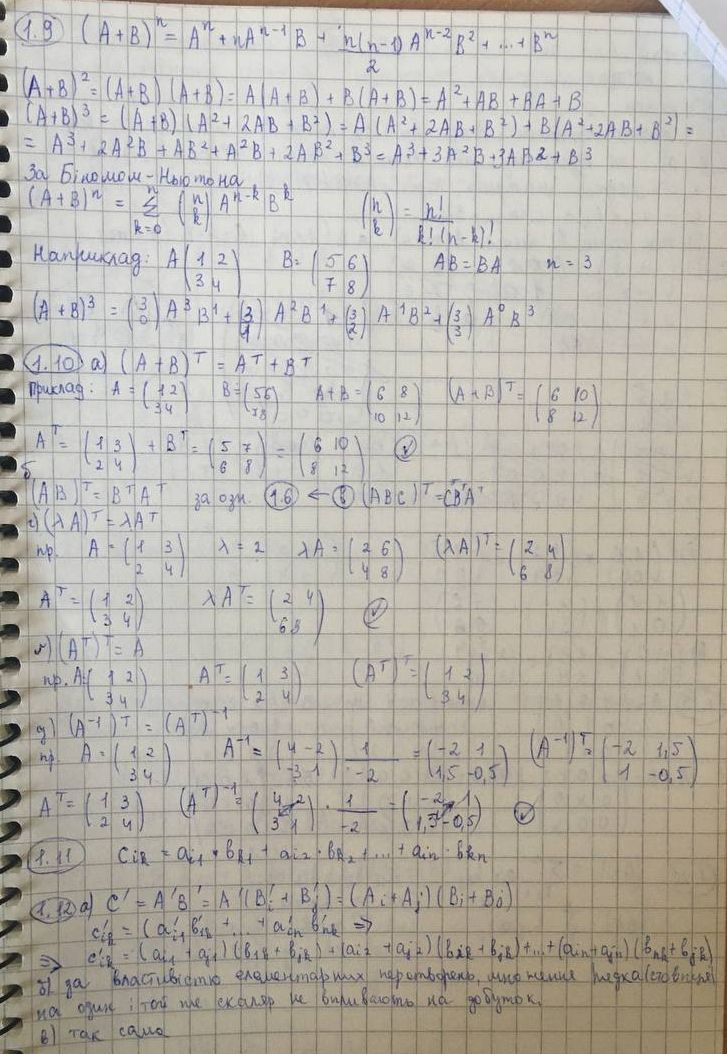 1.9 (A+B)ⁿ = Aⁿ + nAⁿ⁻¹B + n(n-1)/2 Aⁿ⁻²B² + ... + Bⁿ
(A+B)² = (A+B)(A+B) = A(A+B) + B(A+B) = A² + AB + BA + B
(A+B)³ = (A+B)(A² + 2AB + B²) = A(A² + 2AB + B²) + B(A² + 2AB + B²) =
= A³ + 2A²B + AB² + A²B + 2AB² + B³ = A³ + 3A²B + 3AB2 + B3
За Біномом-Ньютона
(A+B)ⁿ = Σ k=0 n (n k) Aⁿ⁻ᵏ Bᵏ (n k) = n!/k!(n-k)!
Наприклад: A (1 2 3 4) B = (5 6 7 8) AB = BA n = 3
(A+B)³ = (3 0) A³ B¹ + (3 1) A²B¹ + (3 2) A¹B² + (3 3) A⁰B³
1.10 а) (A+B)ᵀ = Aᵀ + Bᵀ
Приклад: A = (1 2 3 4) B = (5 6 7 8) A+B = (6 8 10 12) (A+B)ᵀ = (6 10 8 12)
Aᵀ = (1 3 2 4) + Bᵀ = (5 7 6 8) = (6 10 8 12) ✓
б
(AB)ᵀ = BᵀAᵀ за озн. 1.6 ← в (ABC)ᵀ = CᵀBᵀAᵀ
г) (λA)ᵀ = λAᵀ
пр. A = (1 3 2 4) λ = 2 λA = (2 6 4 8) (λA)ᵀ = (2 4 6 8)
Aᵀ = (1 2 3 4) λAᵀ = (2 4 6 8) ✓
(Aᵀ)ᵀ = A
пр. A = (1 2 3 4) Aᵀ = (1 3 2 4) (Aᵀ)ᵀ = (1 2 3 4)
д) (A⁻¹)ᵀ = (Aᵀ)⁻¹
пр A = (1 2 3 4) A⁻¹ = (4 -2 -3 1) 1/-2 = (-2 1 1,5 -0,5) (A⁻¹)ᵀ = (-2 1,5 1 -0,5)
Aᵀ = (1 3 2 4) (Aᵀ)⁻¹ = (4 2 3 1) · 1/-2 = (-2 1 1,5 -0,5) ✓
1.11 cᵢₖ = aᵢ₁ · bₖ₁ + aᵢ₂ · bₖ₂ + ... + aᵢₙ · bₖₙ
1.12 а) C' = A'B' = A'(B'ᵢ + B'ⱼ) = (Aᵢ + Aⱼ)(Bᵢ + Bⱼ)
c'ᵢₖ = (a'ᵢ₁ b'₁ₖ + ... + a'ᵢₙ b'ₙₖ ⇒
⇒ c'ᵢₖ = (aᵢ₁ + aⱼ₁)(b₁ₖ + bⱼₖ) + (aᵢ₂ + aⱼ₂)(b₂ₖ + bⱼₖ) + ... + (aᵢₙ + aⱼₙ)(bₙₖ + bⱼₖ)
б) за властивістю елементарних перетворень, множення рядка (стовпця)
на один і той же скаляр не впливають на добуток.
в) так само